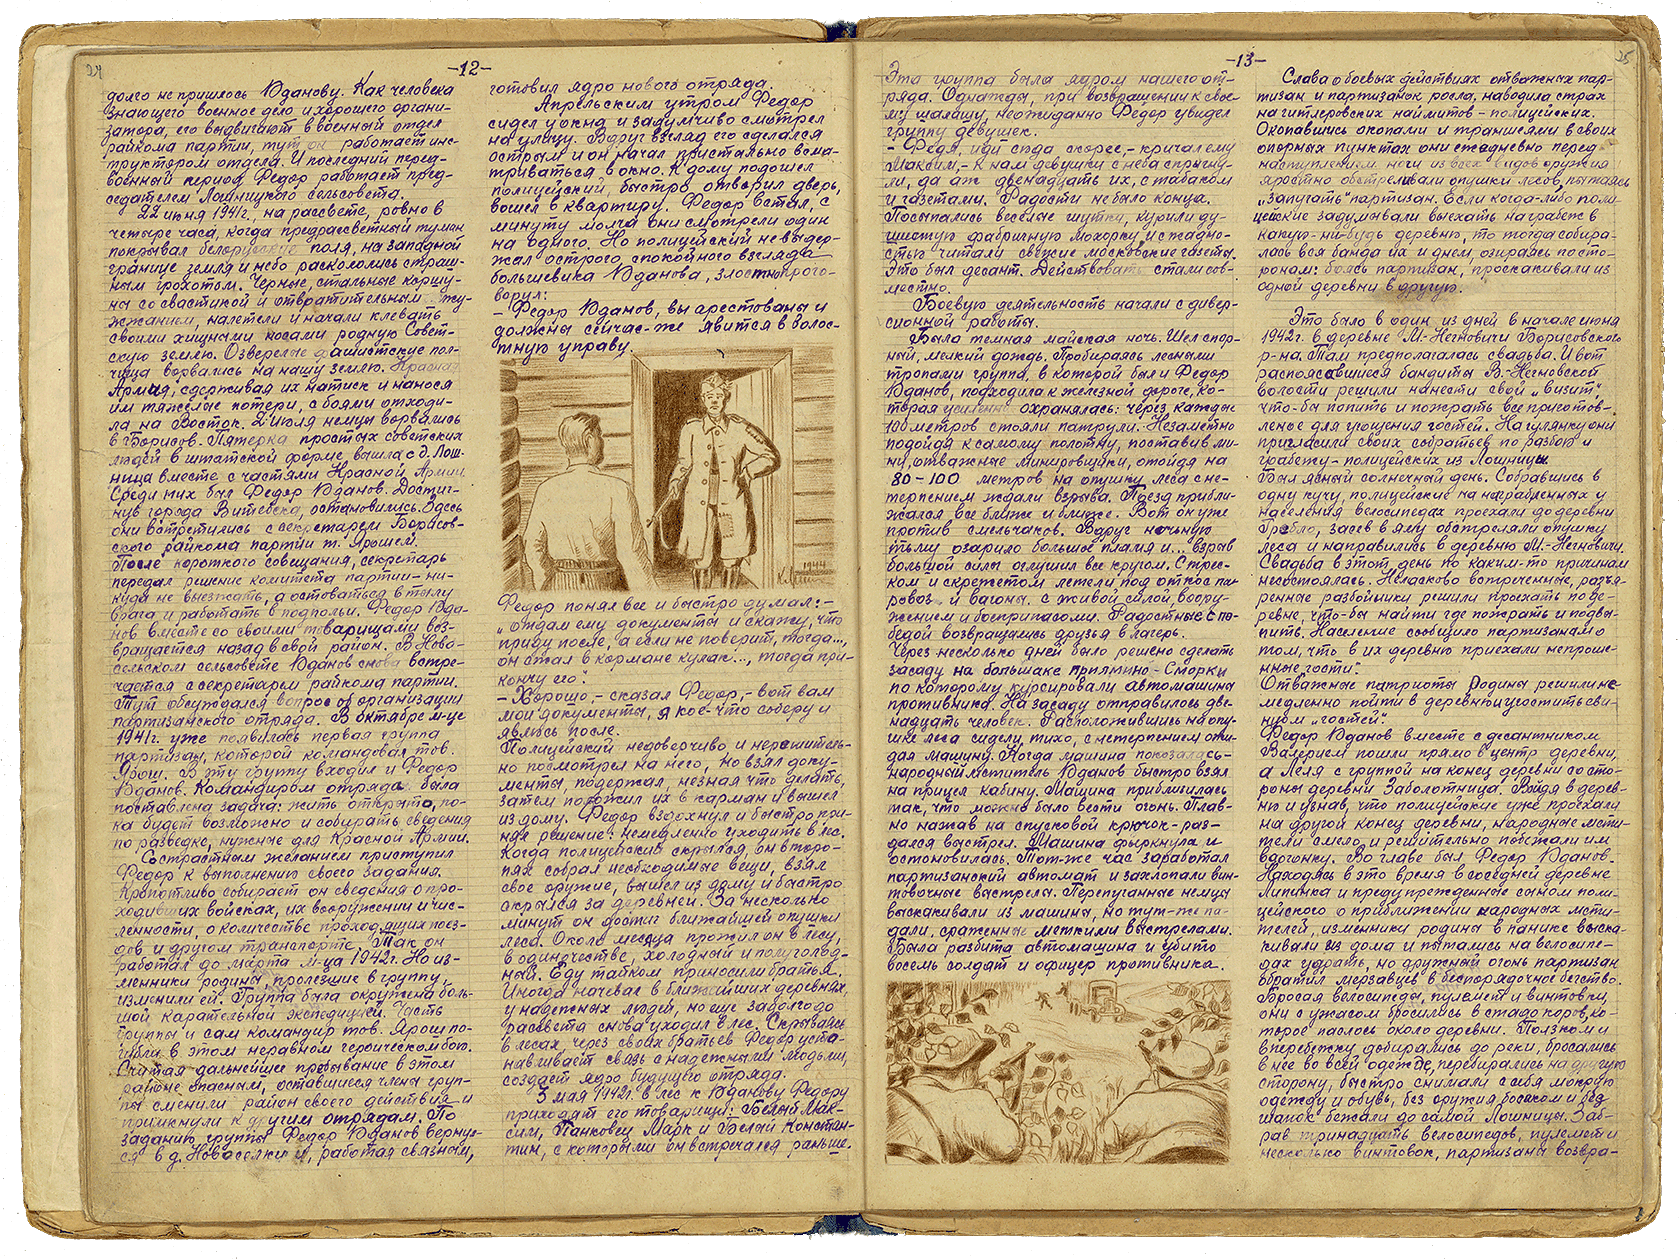 24
-12-
долго не пришлось Юданову. Как человека
знающего военное дело и хорошего органи-
затора, его выдвигают в военный отдел
райкома партии, тут он работает инс-
труктором отдела. И последний перед-
военный период Федор работает пред-
седателем Лошницкого сельсовета.
22 июня 1941г., на рассвете, ровно в
четыре часа, когда предрассветный туман
покрывал белорусские поля, на западной
границе земля и небо раскололись страш-
ным грохотом. Черные, стальные коршу-
ны со свастикой и отвратительным жу-
жжанием, налетели и начали клевать
своими хищными носами родную Совет-
скую землю. Озверелые фашистские пол-
чища ворвались на нашу землю. Красная
Армия, сдерживая их натиск и нанося
им тяжелые потери, с боями отходи-
ла на Восток. 2 июля немцы ворвались
в Борисов. Пятерка простых советских
людей в штатской форме вышла с д. Лош-
ница вместе с частями Красной Армии.
Среди них был Федор Юданов. Достиг-
нув города Витебска, остановились. Здесь
они встретились с секретарем Борисов-
ского райкома партии т. Ярошем.
После короткого совещания, секретарь
передал решение комитета партии - ни-
куда не выезжать, а остоваться в тылу
врага и работать в подпольи. Федор Юда-
нов вместе со своими товарищами воз-
вращается назад в свой район. В Ново-
сельском сельсовете Юданов снова встре-
чается с секретарем райкома партии.
Тут обсуждался вопрос об организации
партизанского отряда. В октябре м-це
1941г. уже появилась первая группа
партизан, которой командовал тов.
Ярош. В эту группу входил и Федор
Юданов. Командиром отряда была
поставлена задача: жить открыто, по-
ка будет возможно и собирать сведения
по разведке, нужные для Красной Армии.
Со страстным желанием приступил
Федор к выполнению своего задания.
Кропотливо собирает он сведения о про-
ходивших войсках, их вооружении и чис-
ленности, о количестве проходящих поез-
дов и другом транспорте. Так он
работал до марта м-ца 1942г. Но из-
менники родины, пролезшие в группу,
изменили ей. Группа была окружена боль-
шой карательной экспедицией. Часть
группы и сам командир тов. Ярош по-
гибли в этом неравном героическом бою.
Считая дальнейшее пребывание в этом
районе опасным, оставшиеся члены груп-
пы сменили район своего действия и
примкнули к другим отрядам. По
заданию группы Федор Юданов верну-
ся в д. Новоселки и, работая связным,
готовил ядро нового отряда.
Апрельским утром Федор
сидел у окна и задумчиво смотрел
на улицу. Вдруг взгляд его сделался
острым и он начал пристально всма-
триваться в окно. К дому подошел
полицейский, быстро отворил дверь,
вошел в квартиру. Федор встал, с
минуту молча они смотрели один
на одного. Но полицейский не выдер-
жал острого, спокойного взгляда
большевика Юданова, злостно прого-
ворил:
- Федор Юданов, вы арестованы и
должны сейчас-же явится в волос-
тную управу.
1944
Федор понял все и быстро думал: -
„отдам ему документы и скажу, что
приду после, а если не поверит, тогда...,
он сжал в кормане кулак..., тогда при-
кончу его".
- Хорошо, - сказал Федор, - вот вам
мои документы, я кое-что соберу и
явлюсь после.
Полицейский недоверчиво и нерешитель-
но посмотрел на него, но взял доку-
менты, подержал, незная что делать,
затем положил их в карман и вышел
из дому. Федор вздохнул и быстро при-
нял решение: немедленно уходить в лес.
Когда полицейский скрылся, он второ-
пях собрал необходимые вещи, взял
свое оружие, вышел из дому и быстро
скрылся за деревней. За несколько
минут он достиг ближайшей опушки
леса. Около месяца прожил он в лесу,
в одиночестве, холодный и полуголод-
ный. Еду тайком приносили братья.
Иногда ночевал в ближайших деревнях,
у надежных людей, но еще задолго до
рассвета снова уходил в лес. Скрываясь
в лесах, через своих братьев Федор уста-
навливает связь с надежными людьми,
создает ядро будущего отряда.
3 мая 1942г. в лес к Юданову Федору
приходят его товарищи: Белый Мак-
сим, Панковец Марк и Белый Констан-
тин, с которыми он встречался раньше.
-13-
25
Эта группа была ядром нашего от-
ряда. Однажды, при возвращении к свое-
му шалашу, неожиданно Федор увидел
группу девушек.
- Федя, иди сюда скорее, - кричал ему
Максим, - к нам девушки с неба спрыгну-
ли, да аж двенадцать их, с табаком
и газетами. Радости не было конца.
Посыпались веселые шутки, курили ду-
шистую фабричную махорку, и с жадно-
стью читали свежие московские газеты.
Это был десант. Действовать стали сов-
местно.
Боевую деятельность начали с дивер-
сионной работы.
Была темная майская ночь. Шел спор-
ный, мелкий дождь. Пробираясь лесными
тропами группа, в которой был и Федор
Юданов, подходила к железной дороге, ко-
торая усиленно охранялась: через каждые
100 метров стояли патрули. Незаметно
подойдя к самому полотну, поставив ми-
ну, отважные минировщики, отойдя на
80-100 метров на опушку леса с не-
терпением ждали взрыва. Поезд прибли-
жался все ближе и ближе. Вот он уже
против смельчаков. Вдруг ночную
тьму озарило большое пламя и... взрыв
большой силы оглушил все кругом. С трес-
ком и скрежетом летели под откос па-
ровоз и вагоны с живой силой, воору-
жением и боеприпасами. Радостные с по-
бедой возвращались друзья в лагерь.
Через несколько дней было решено сделать
засаду на большаке Прямино - Сморки
по которому курсировали автомашины
противника. На засаду отправилось две-
надцать человек. Расположившись на опу-
шке леса сидели, тихо, с нетерпением ожи-
дая машину. Когда машина показалась -
народный мститель Юданов быстро взял
на прицел кабину. Машина приблизилась
так, что можно было вести огонь. Плав-
но нажав на спусковой крючок - раз-
дался выстрел. Машина фыркнула и
остоновилась. Тот-же час заработал
партизанский автомат и захлопали вин-
товочные выстрелы. Перепуганные немцы
выскакивали из машины, но тут-же па-
дали, сраженные меткими выстрелами.
Была разбита автомашина и убито
восемь солдат и офицер противника.
Слава о боевых действиях отважных пар-
тизан и партизанок росла, наводила страх
на гитлеровских наймитов - полицейских.
Окопавшись окопами и траншеями в своих
опорных пунктах они ежедневно перед
наступлением ночи из всех видов оружия
яростно обстреливали опушки лесов, пытаясь
„запугать" партизан. Если когда-либо поли-
цейские задумывали выехать на грабеж в
какую-нибудь деревню, то тогда собира-
лась вся банда их и днем, озираясь по сто-
ронам: боясь партизан, проскакивали из
одной деревни в другую.
Это было в один из дней в начале июня
1942г. в деревне М.-Негновичи Борисовского
р-на. Там предполагалась свадьба. И вот
распоясавшиеся бандиты В.-Негновской
волости решили нанести свой „визит",
что-бы попить и пожрать все приготов-
леное для угощения гостей. На гулянку они
пригласили своих собратьев по разбою и
грабежу - полицейских из Лошницы.
Был ясный солнечный день. Собравшись в
одну кучу, полицейские на награбленных у
населения велосипедах проехали до деревни
Гребло, засев в яму обстреляли опушку
леса и направились в деревню М.-Негновичи.
Свадьба в этот день по каким-то причинам
несостоялась. Неласково встреченные, разъя-
ренные разбойники решили проехать по де-
ревне, что-бы найти где пожрать и подвы-
пить. Население сообщило партизанам о
том, что в их деревню приехали непроше-
нные гости.
Отважные патриоты Родины решили не-
медленно пойти в деревню и угостить сви-
нцом „гостей".
Федор Юданов вместе с десантником
Валерием пошли прямо в центр деревни,
а Леля с группой на конец деревни со сто-
роны деревни Заболотница. Войдя в дерев-
ню и узнав, что полицейские уже проехали
на другой конец деревни, народные мсти-
тели смело и решительно побежали им
вдогонку. Во главе был Федор Юданов.
Находясь в это время в соседней деревне
Липники и предупрежденные сыном поли-
цейского о приближении народных мсти-
телей, изменники родины в панике выска-
кивали из дома и пытались на велосипе-
дах удрать, но дружный огонь партизан
обратил мерзавцев в беспорядочное бегство.
Бросая велосипеды, пулемет и винтовки,
они с ужасом бросились в стадо коров, ко-
торое паслось около деревни. Ползком и
вперебежку добирались до реки, бросались
в нее во всей одежде, перебирались на другую
сторону, быстро снимали с себя мокрую
одежду и обувь, без оружия босиком и без
шапок бежали до самой Лошницы. Заб-
рав тринадцать велосипедов, пулемет и
несколько винтовок, партизаны возвра-